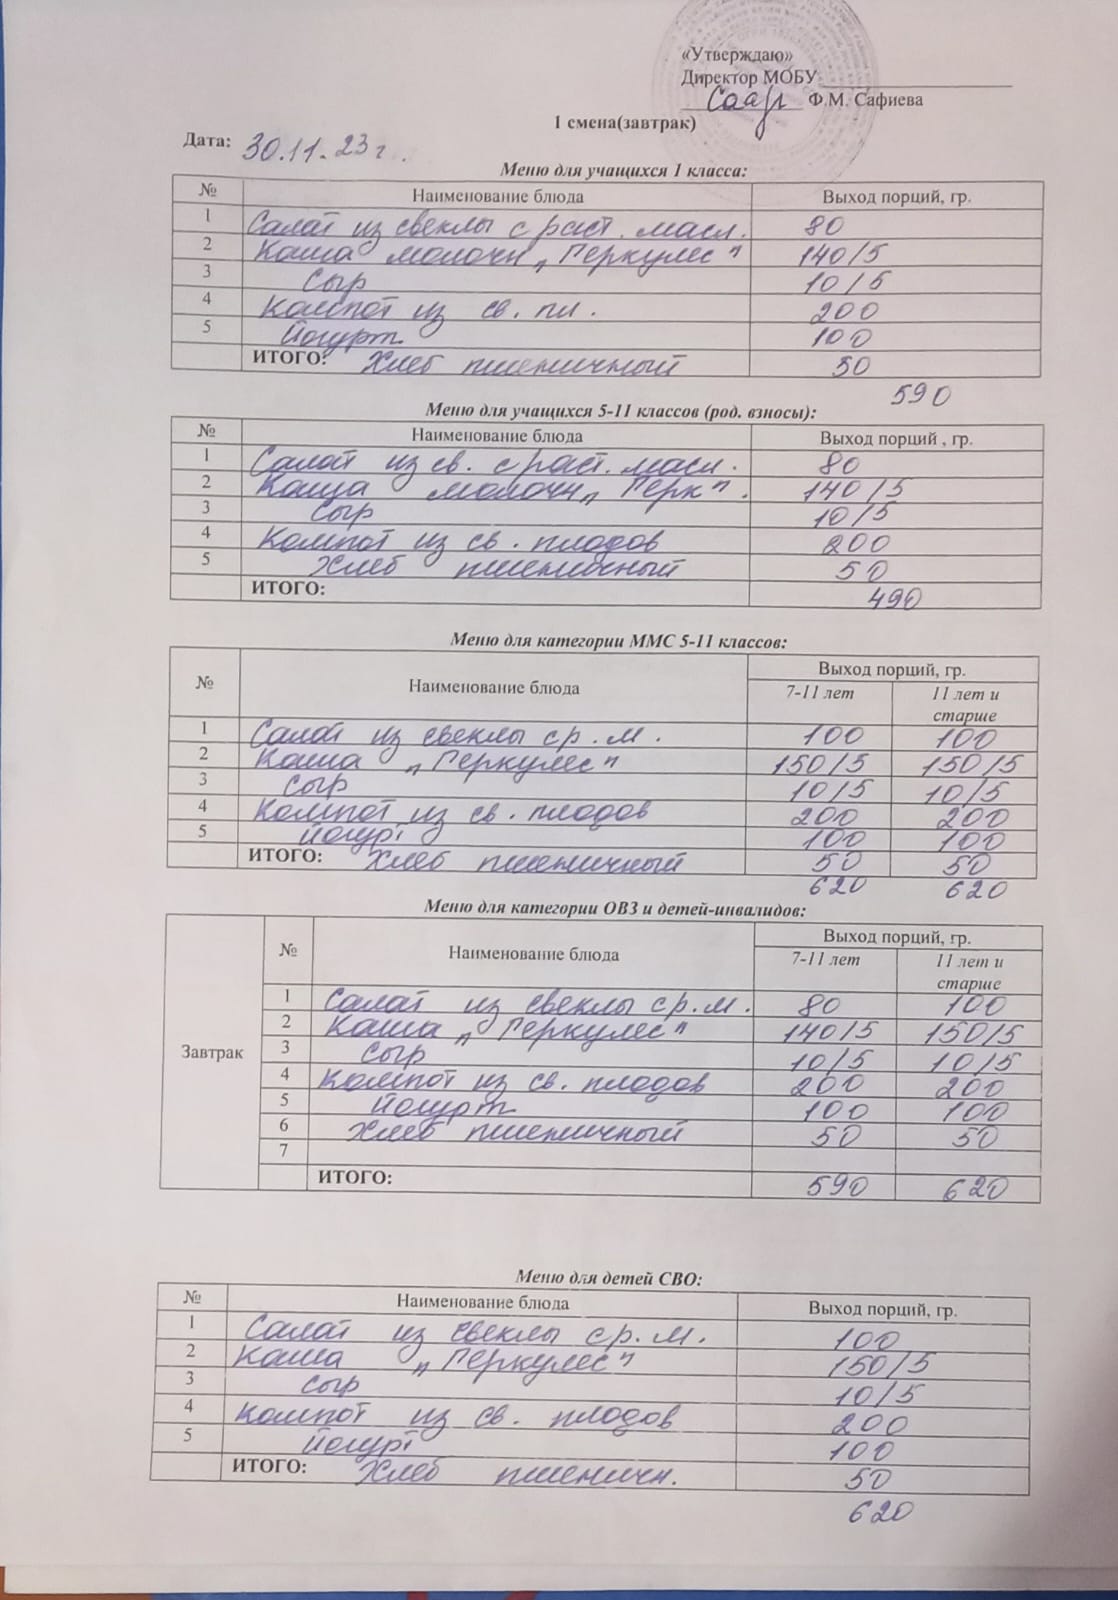 «Утверждаю»
Директор МОБУ
Ф.М. Сафиева
1 смена(завтрак)
Дата: 30.11.23 г.
Меню для учащихся 1 класса:
№ Наименование блюда Выход порций, гр.
1 Салат из свеклы с раст. масл. 80
2 Каша молочн „Геркулес" 140/5
3 Сыр 10/5
4 Компот из св. пл. 200
5 Йогурт 100
ИТОГО: Хлеб пшеничный 50
590
Меню для учащихся 5-11 классов (род. взносы):
№ Наименование блюда Выход порций , гр.
1 Салат из св. с раст. масл. 80
2 Каша молочн „Герк". 140/5
3 Сыр 10/5
4 Компот из св. плодов 200
5 Хлеб пшеничный 50
ИТОГО: 490
Меню для категории ММС 5-11 классов:
№ Наименование блюда Выход порций, гр.
7-11 лет 11 лет и старше
1 Салат из свеклы с р.м. 100 100
2 Каша „Геркулес" 150/5 150/5
3 Сыр 10/5 10/5
4 Компот из св. плодов 200 200
5 Йогурт 100 100
ИТОГО: Хлеб пшеничный 50 50
620 620
Меню для категории ОВЗ и детей-инвалидов:
Завтрак № Наименование блюда Выход порций, гр.
7-11 лет 11 лет и старше
1 Салат из свеклы с р.м. 80 100
2 Каша „Геркулес" 140/5 150/5
3 Сыр 10/5 10/5
4 Компот из св. плодов 200 200
5 Йогурт 100 100
6 Хлеб пшеничный 50 50
7
ИТОГО: 590 620
Меню для детей СВО:
№ Наименование блюда Выход порций, гр.
1 Салат из свеклы с р.м. 100
2 Каша „Геркулес" 150/5
3 Сыр 10/5
4 Компот из св. плодов 200
5 Йогурт 100
ИТОГО: Хлеб пшеничн. 50
620